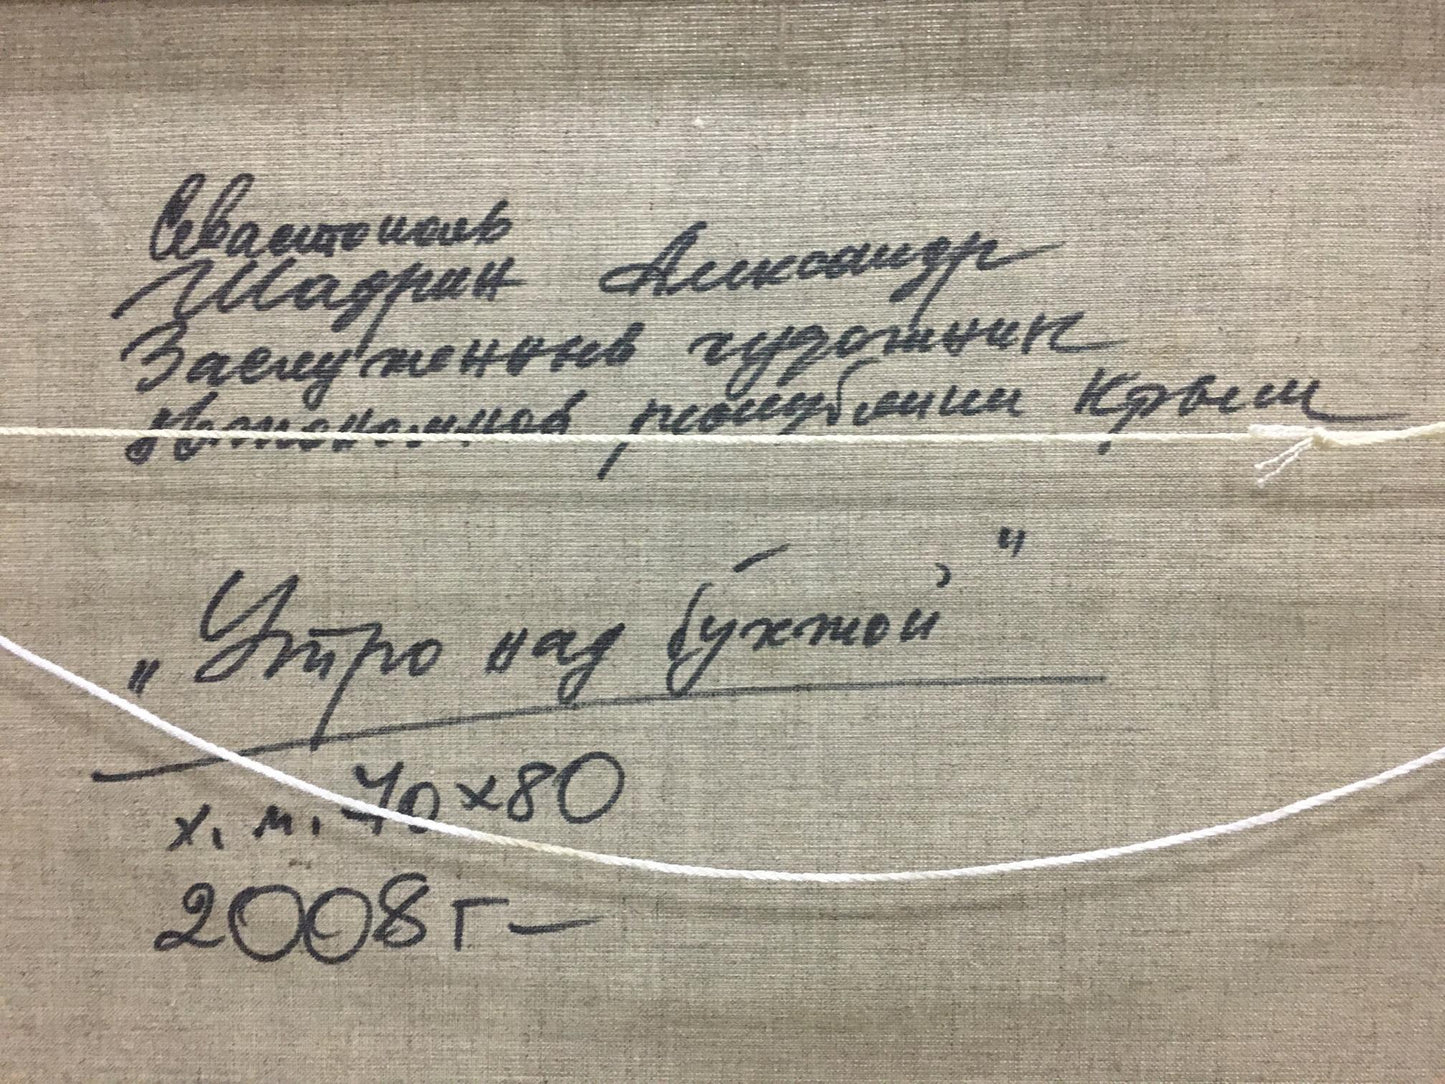 Севастополь
Шадрин Александр
Заслуженный художник
Автономной республики Крым
„Утро над бухтой"
х. м. 70х80
2008 г